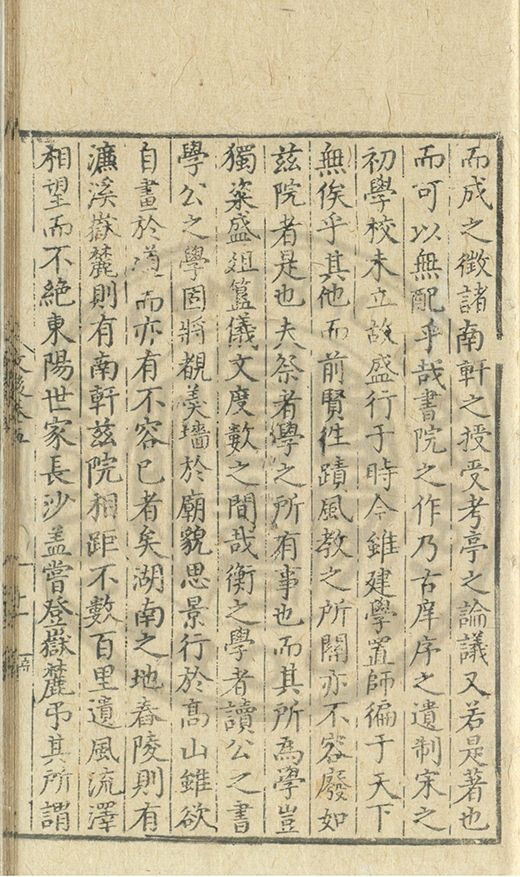 而成之徵諸南軒之授受考亭之論議又若是著也
而可以無配乎哉書院之作乃古庠序之遺制宋之
初學校未立故盛行于時今雖建學置師徧于天下
無俟乎其他而前賢徃蹟風教之所關亦不容廢如
茲院者是也夫祭者學之所有事也而其所爲學豈
獨粢盛俎簋儀文度數之間哉衡之學者讀公之書
學公之學固將覩羹墻於廟貌思景行於高山雖欲
自畫於道而亦有不容已者矣湖南之地舂陵則有
濂溪嶽麓則有南軒茲院相距不數百里遺風流澤
相望而不絶東陽世家長沙盖嘗登嶽麓弔其所謂